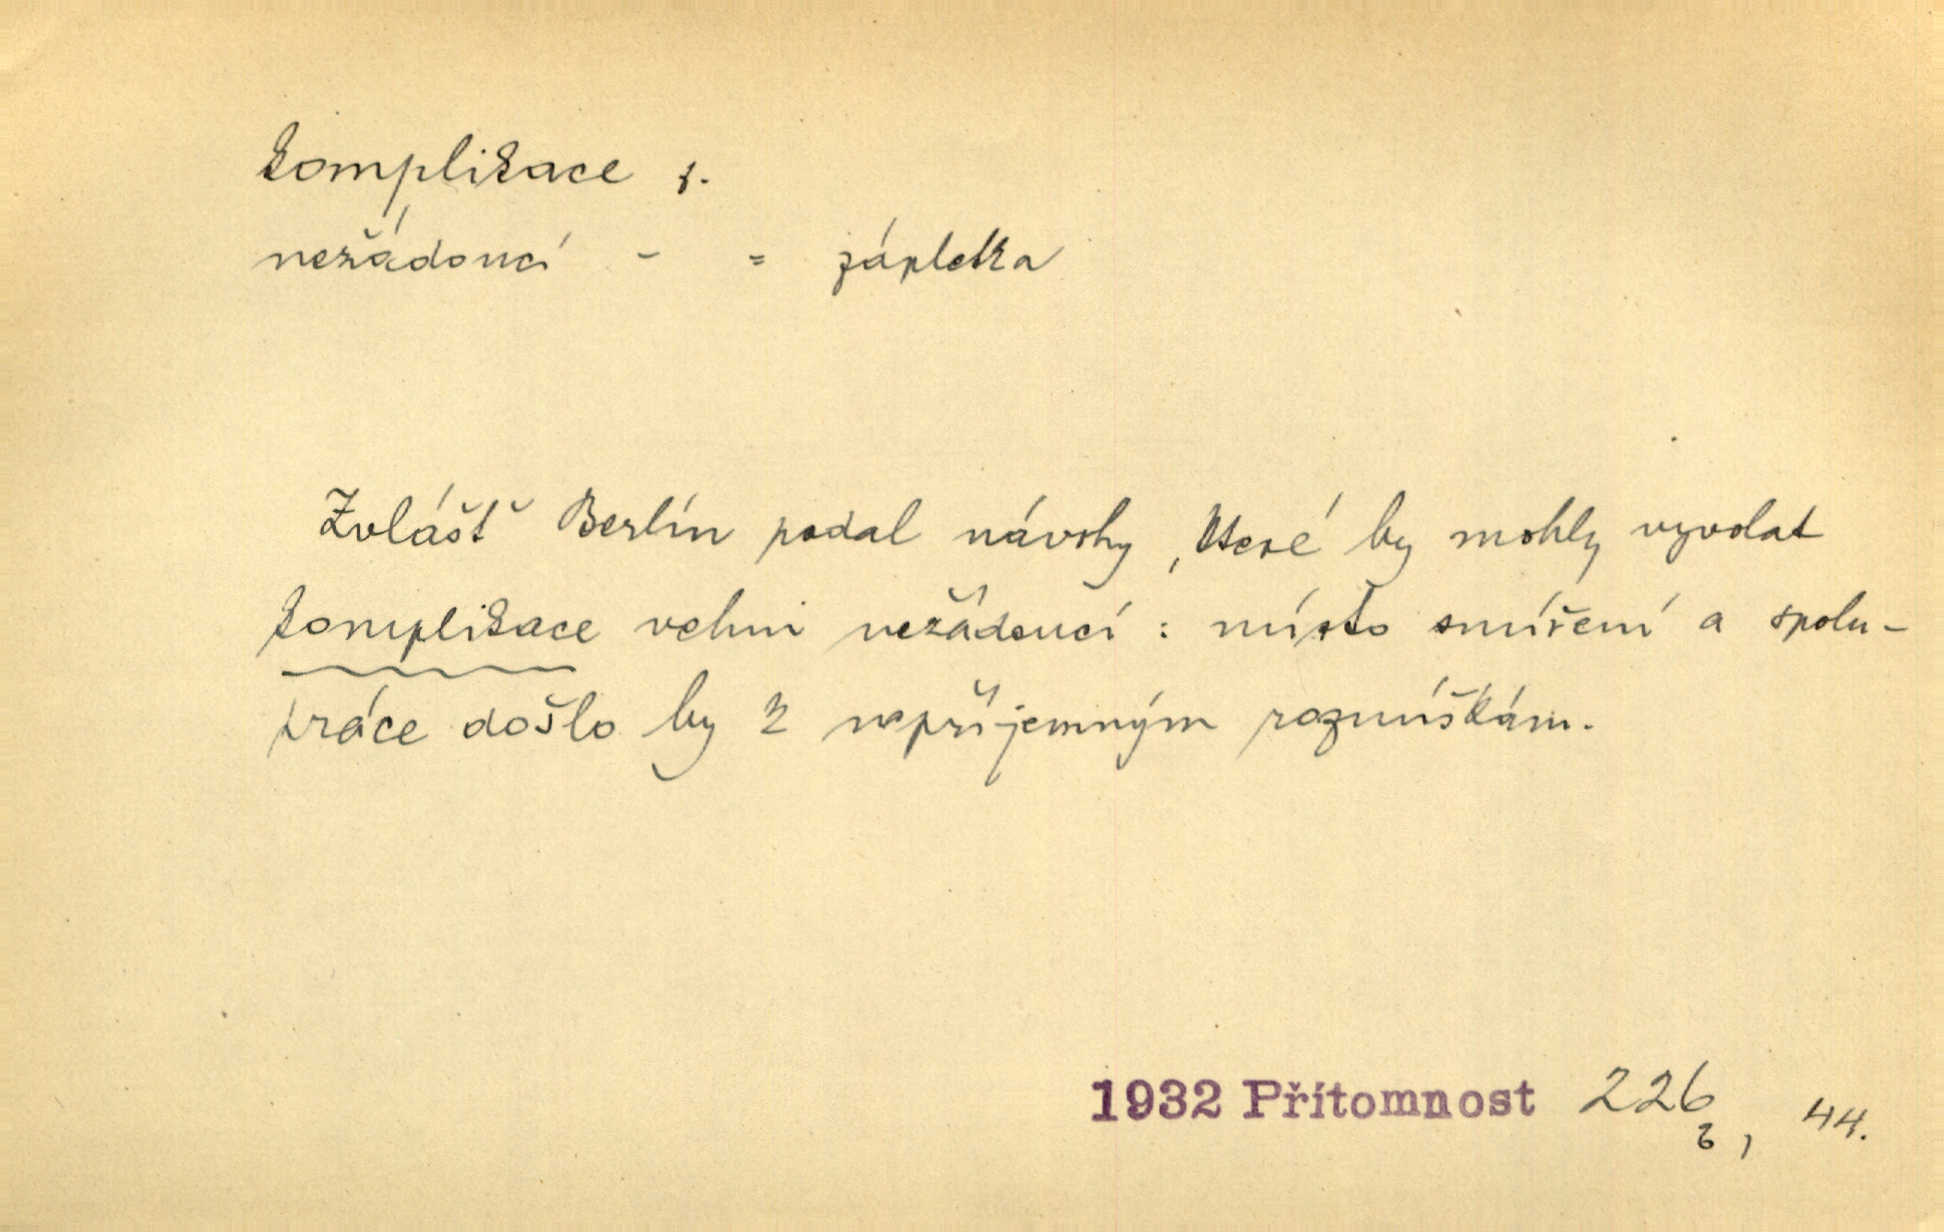 komplikace f.
nežádoucí - = zápletka
Zvlášť Berlín podal návrhy, které by mohly vyvolat
komplikace velmi nežádoucí : místo smíření a spolu-
práce došlo by k nepříjemným rozmíškám.
1932 Přítomnost 226
b, 44.